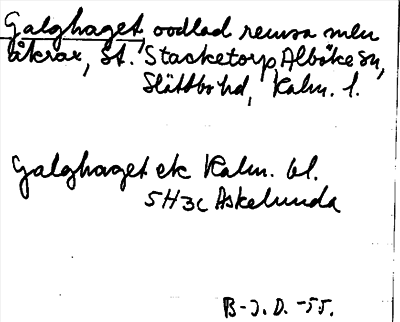 Galghaget, oodlad remsa mellan
åkrar, St. Stacketorp Alböke sn,
Slättbo hd, Kalm. l.
Galghaget ek Kalm. bl.
5H3c Askelunda
B-J.D. -55.